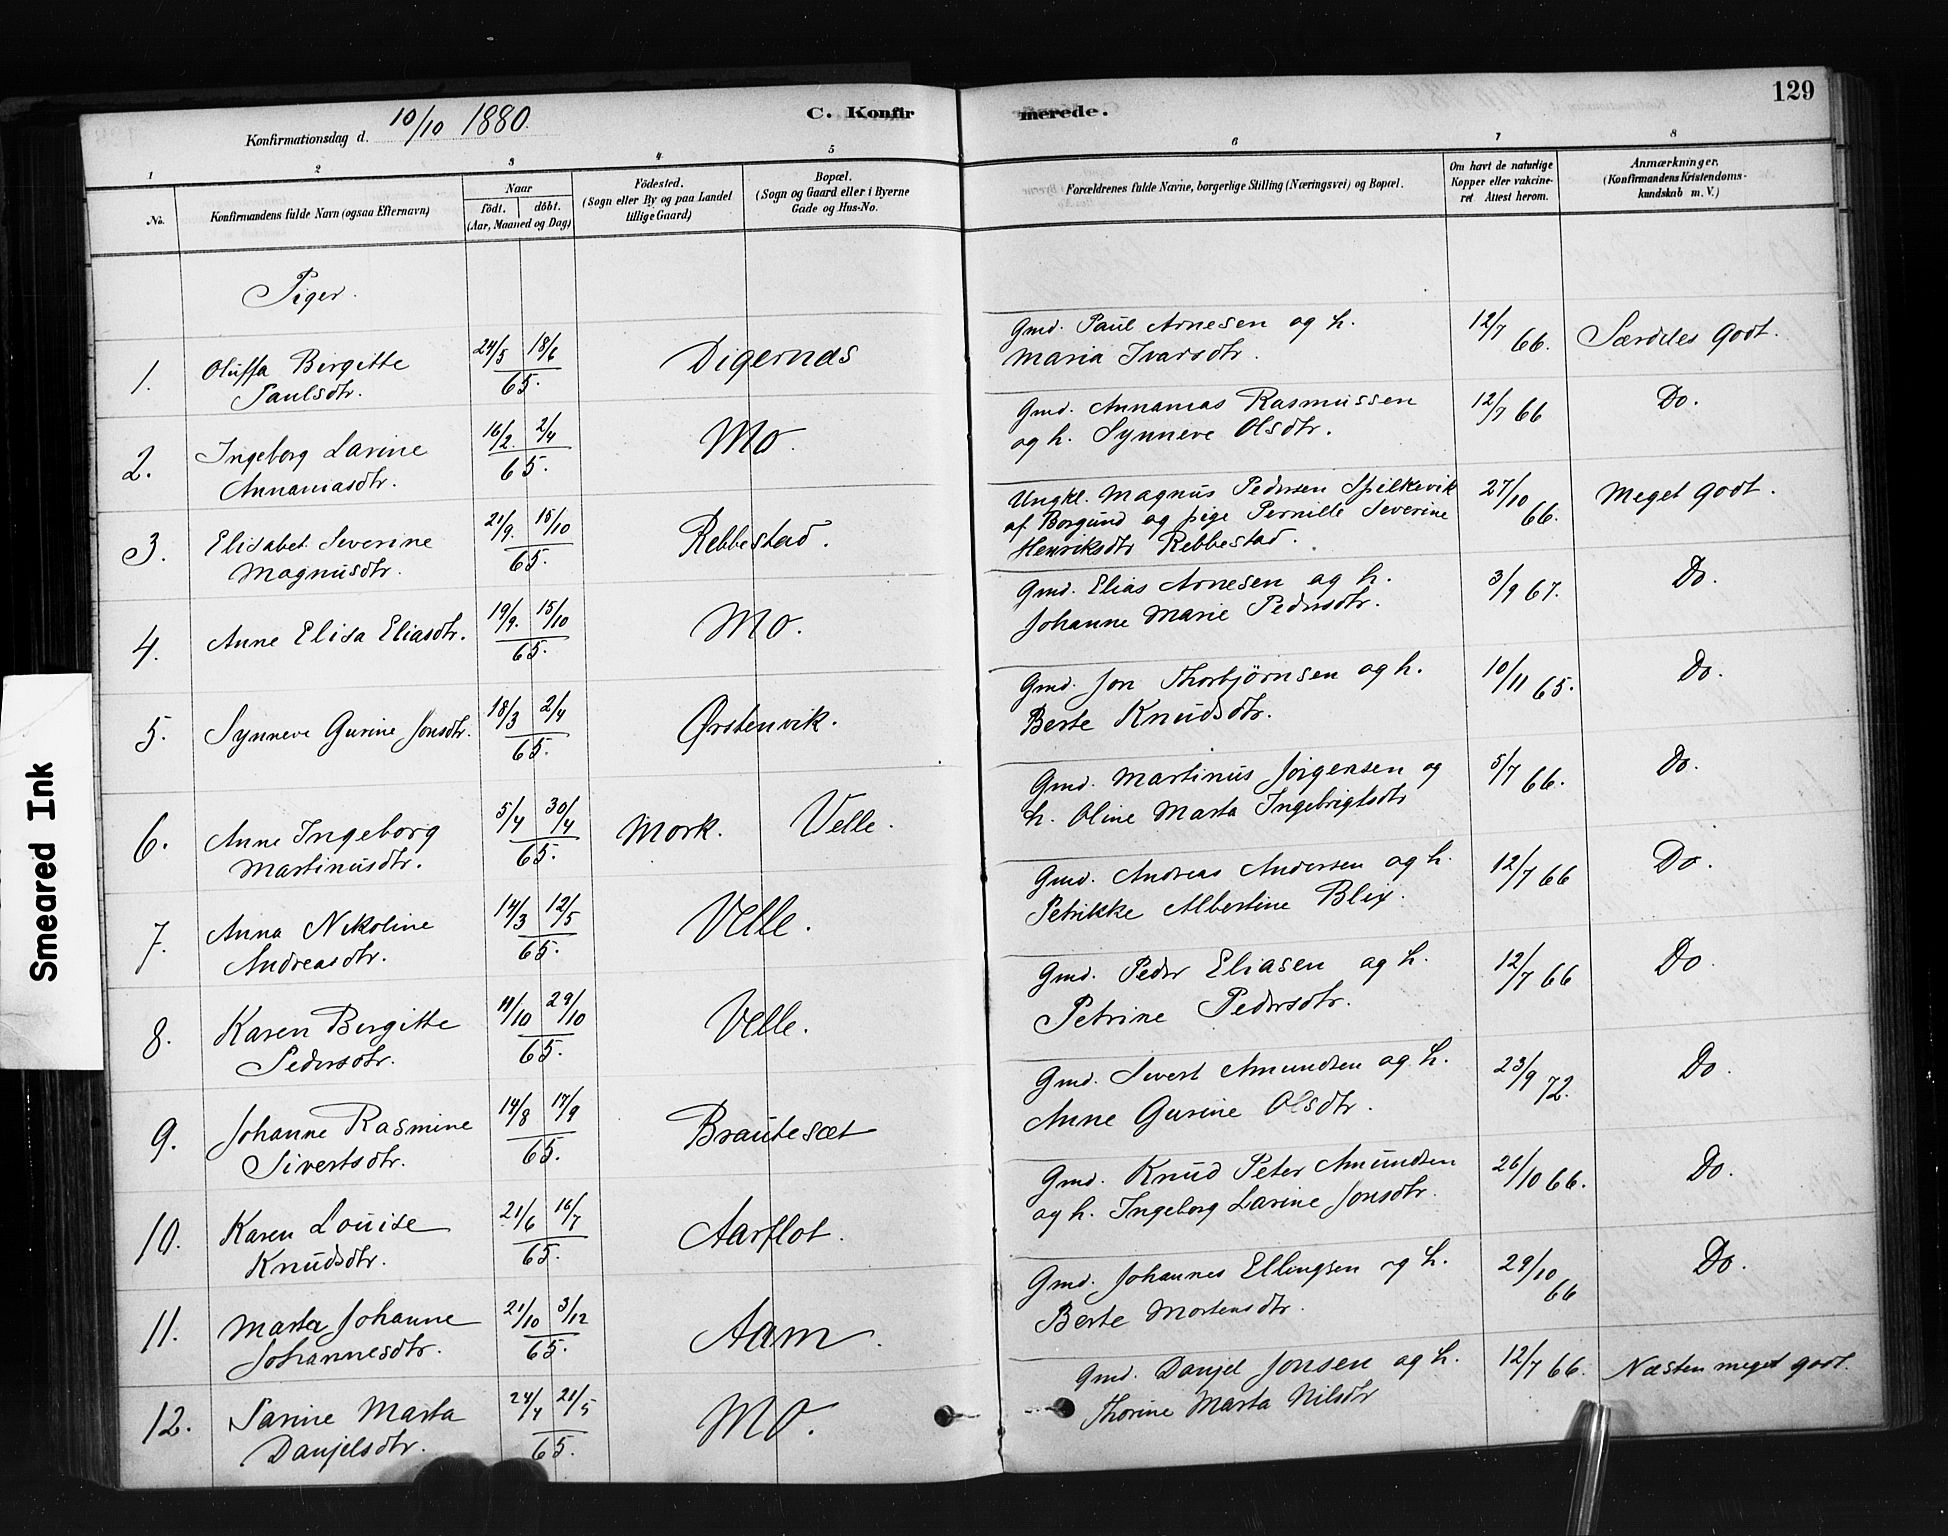 129
Konfirmationsdag d. 10/10 1880.
C. Konfirmerede.
1 2 3 4 5 6 7 8
No.
Konfirmandens fulde Navn (ogsaa Efternavn)
Naar
födt. döbt.
(Aar, Maaned og Dag)
Födested.
(Sogn eller By og paa Landet
tillige Gaard)
Bopæl.
(Sogn og Gaard eller i Byerne
Gade og Hus-No.
Forældrenes fulde Navne, borgerlige Stilling (Næringsvei) og Bopæl.
Om havt de naturlige
Kopper eller vakcine-
ret Attest herom.
Anmærkninger.
(Konfirmandens Kristendoms-
kundskab m. V.)
Piger.
1. Oluffa Birgitte
Paulsdtr.
24/5 18/6
65.
Digernæs
Gmd. Paul Arnesen og h.
Maria Ivarsdtr.
12/7 66.
Særdeles Godt.
2. Ingeborg Larine
Annaniasdtr.
16/2. 2/4
65.
Mo.
Gmd. Annanias Rasmussen
og h. Synneve Olsdtr.
12/7 66
Do.
3. Elisabet Severine
Magnusdtr.
21/9. 15/10
65.
Rebbestad.
Ungkl. Magnus Pedersen Spilkevik
af Borgund og pige Pernille Severine
Henriksdtr Rebbestad.
27/10 66.
Meget Godt.
4. Anne Elisa Eliasdtr.
19/9. 15/10
65.
Mo.
Gmd. Elias Arnesen og h.
Johanne Marie Pedersdtr.
3/9 67.
Do.
5. Synneve Gurine Jonsdtr.
18/3 2/4
65.
Ørstenvik.
Gmd. Jon Thorbjørnsen og h.
Berte Knudsdtr.
10/11 65.
Do.
6. Anne Ingeborg
Martinusdtr.
5/4 30/4
65.
Mork. Velle.
Gmd. Martinus Jørgensen og
h. Oline Marta Ingebrigtsdtr
5/7 66.
Do.
7. Anna Nikoline
Andreasdtr.
14/3 12/5
65.
Velle.
Gmd. Andreas Andersen og h.
Petrikke Albertine Blix.
12/7 66
Do.
8. Karen Birgitte
Pedersdtr.
11/10 29/10
65.
Velle.
Gmd. Peder Eliasen og h.
Petrine Pedersdtr.
12/7 66
Do.
9. Johanne Rasmine
Sivertsdtr.
14/8 17/9
65.
Brautesæt
Gmd. Sivert Amundsen og h.
Anne Gurine Olsdtr.
23/9 72.
Do.
10. Karen Louise
Knudsdtr.
21/6 16/7
65.
Aarflot.
Gmd. Knud Peter Amundsen
og h. Ingeborg Larine Jonsdtr.
26/10 66.
Do.
11. Marta Johanne
Johannesdtr.
21/10 3/12
65.
Aam.
Gmd. Johannes Ellingsen og h.
Berte Mortensdtr.
29/10 66
Do.
12. Sarine Marta
Danjelsdtr.
24/4 21/5
65.
Mo.
Gmd. Danjel Jonsen og h.
Thorine Marta Nilsdtr
12/7 66.
Næsten meget godt.
Smeared Ink